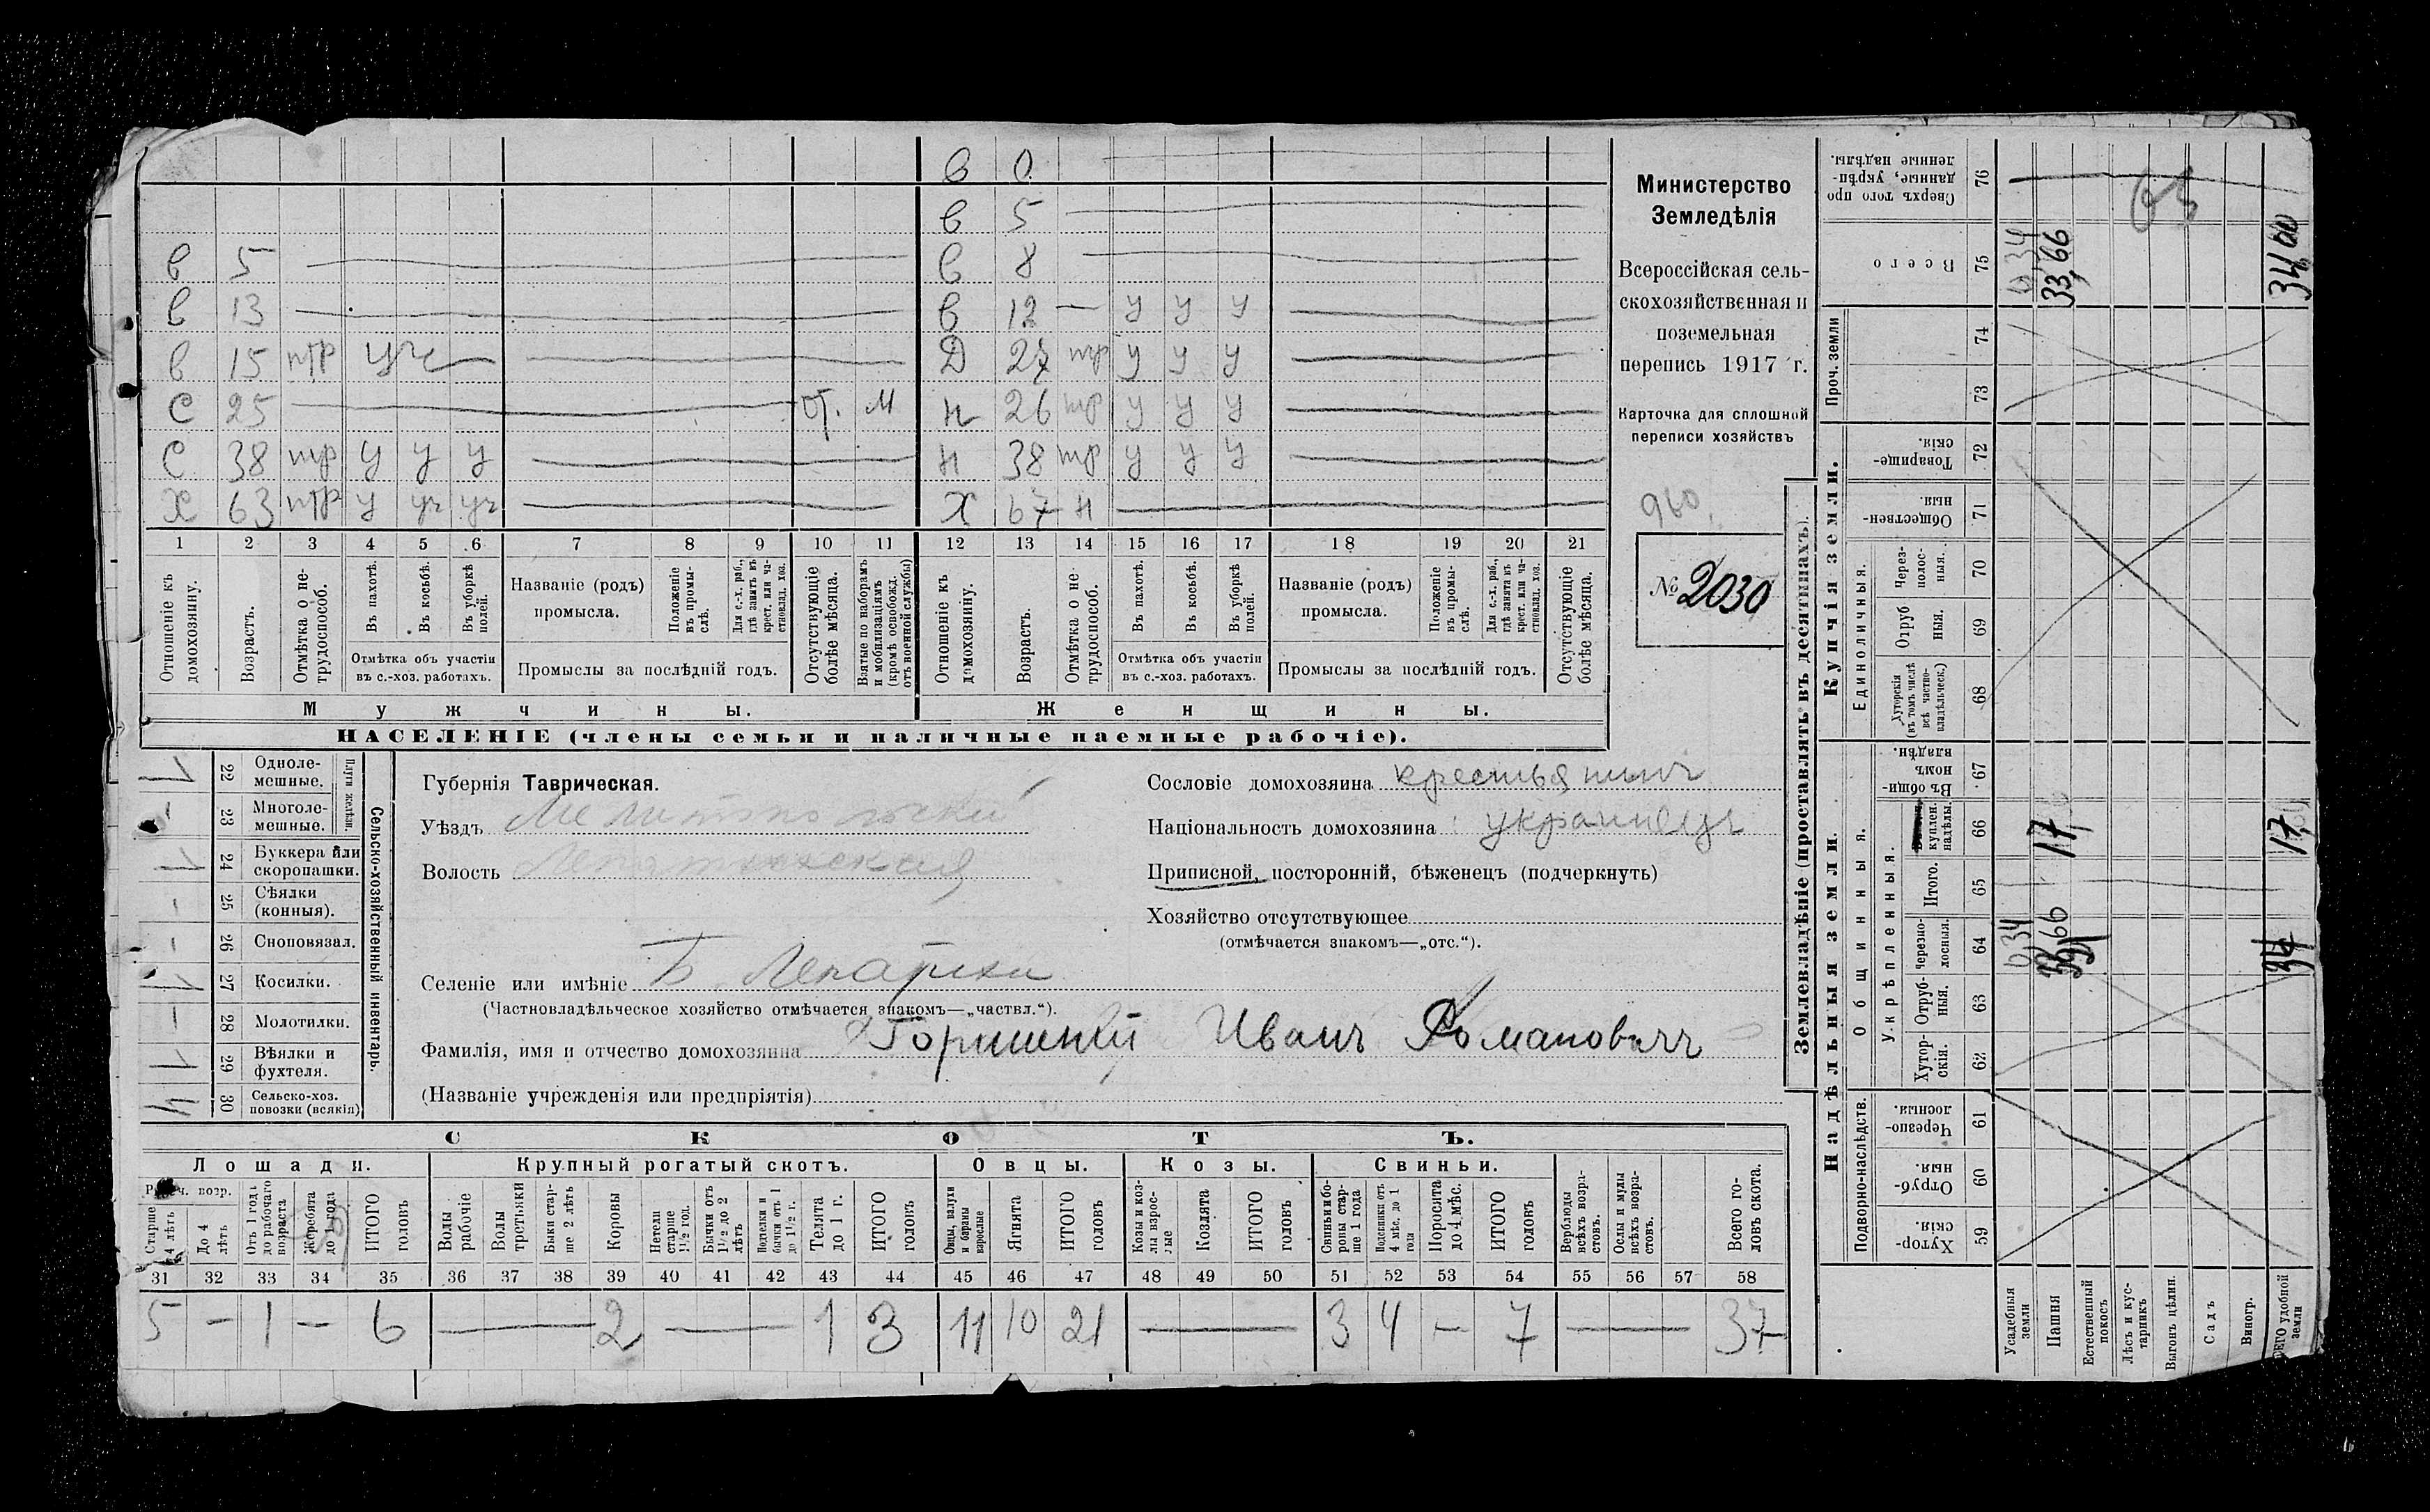 в 0
в 5
в 5 в 8
в 13 в 12 — у у у
в 15 тр уч Д 27 тр у у у
С 25 от. м н 26 тр у у у
С 38 тр у у у н 38 тр у у у
Х 63 тр у уч уч Х 67 н
1 2 3 4 5 6 7 8 9 10 11 12 13 14 15 16 17 18 19 20 21
Отношеніе къ домохозяину.
Возрастъ.
Отмѣтка о нетрудоспособ.
Въ пахотѣ.
Въ косьбѣ.
Въ уборкѣ полей.
Отмѣтка объ участіи
въ с.-хоз. работахъ.
Названіе (родъ)
промысла.
Положеніе въ промыслѣ.
Для с.-х. раб., гдѣ занятъ въ крест. или частновлад. хоз.
Промыслы за послѣдній годъ.
Отсутствующіе болѣе мѣсяца.
Взятые по наборамъ и мобилизаціямъ (кромѣ освобожд. отъ военной службы)
Отношеніе къ домохозяину.
Возрастъ.
Отмѣтка о не трудоспособ.
Въ пахотѣ.
Въ косьбѣ.
Въ уборкѣ полей.
Отмѣтка объ участіи
въ с.-хоз. работахъ.
Названіе (родъ)
промысла.
Положеніе въ промыслѣ.
Для с.-х. раб., гдѣ занятъ въ крест. или частновлад. хоз.
Промыслы за послѣдній годъ.
Отсутствующіе болѣе мѣсяца.
Мужчины. Женщины.
НАСЕЛЕНІЕ (члены семьи и наличные наемные рабочіе).
Министерство
Земледѣлія
Всероссійская сель-
скохозяйственная и
поземельная
перепись 1917 г.
Карточка для сплошной
переписи хозяйствъ
960
№ 2030
1 22 Одноле-
мешные.
- 23 Многоле-
мешные.
Плуги желѣзн.
1 24 Буккера или
скоропашки.
- 25 Сѣялки
(конныя).
- 26 Сноповязал.
1 27 Косилки.
- 28 Молотилки.
1 29 Вѣялки и
фухтеля.
4 30 Сельско-хоз.
повозки (всякія)
Сельско-хозяйственный инвентарь.
Губернія Таврическая.
Уѣздъ Мелитопольскій
Волость
Селеніе или имѣніе Б. Лепатиха
(Частновладѣльческое хозяйство отмѣчается знакомъ—„частвл.“).
Фамилія, имя и отчество домохозяина Иванъ Романовичъ
(Названіе учрежденія или предпріятія)
Сословіе домохозяина крестьянинъ
Національность домохозяина украинецъ
Приписной, посторонній, бѣженецъ (подчеркнуть)
Хозяйство отсутствующее
(отмѣчается знакомъ—„отс.“).
СКОТЪ.
Лошади. Крупный рогатый скотъ. Овцы. Козы. Свиньи.
Старше 4 лѣтъ
До 4 лѣтъ
Отъ 1 года до рабочаго возраста
Жеребята до 1 года
ИТОГО головъ
Волы рабочіе
Волы третьяки
Быки старше 2 лѣтъ
Коровы
Нетели старше 1½ год.
Бычки отъ 1½ до 2 лѣтъ
Телята до 1 г.
ИТОГО головъ
Овцы, валухи и бараны взрослые
Ягнята
ИТОГО головъ
Козы и козлы взрослые
Козлята
ИТОГО головъ
Свиньи и боровы старше 1 года
Подсвинки отъ 4 мѣс. до 1 года
Поросята до 4 мѣс.
ИТОГО головъ
Верблюды всѣхъ возрастовъ.
Ослы и мулы всѣхъ возрастовъ.
Всего головъ скота.
31 32 33 34 35 36 37 38 39 40 41 42 43 44 45 46 47 48 49 50 51 52 53 54 55 56 57 58
5 – 1 – 6 — 2 — 1 3 11 10 21 — 3 4 – 7 — 37
Землевладѣніе (проставлять въ десятинахъ).
Надѣльныя земли. Купчія земли.
Проч. земли
Подворно-наслѣдств.
Общинныя.
Укрѣпленныя.
Единоличныя.
Сверхъ того проданные, укрѣпленные надѣлы. 76
Всего 75 0,34 33,66 34,00
74
73
Товарищескія. 72
Общественныя. 71
Черезполосныя. 70
Отрубныя. 69
Хуторскія (въ томъ числѣ всѣ частновладѣльческ.) 68
Въ общинномъ владѣн. 67
куплен. надѣлы. 66 17 17
Итого. 65
Черезполосныя. 64 0,34
Отрубныя. 63
Хуторскія. 62
Черезполосныя. 61
Отрубныя. 60
Хуторскія. 59
Усадебныя земли
Пашня
Естественный покосъ
Лѣсъ и кустарникъ
Выгонъ цѣлин.
Садъ
Виногр.
ВСЕГО удобной земли